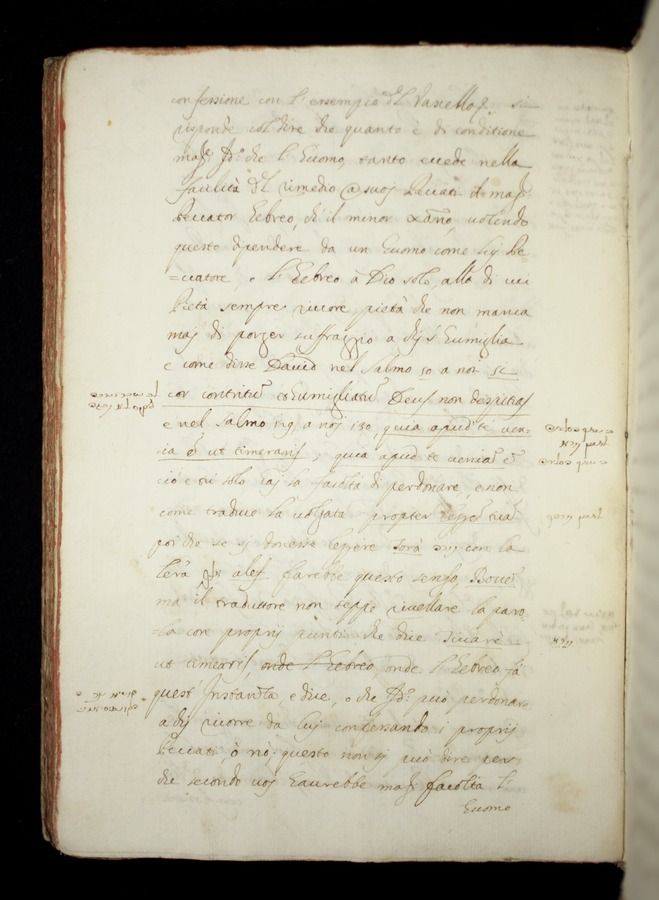 confessione con l'essempio del Vasello. si
risponde col dire che quanto è di conditione
magr. Id. che l'Huomo, tanto eccede nella
facilità del rimedio a suoj Peccati il magr.
Peccator Hebreo, ch'il minor xano, volendo
questo dipendere da un Huomo come luj Pe
=ccatore, e l'Hebreo à Dio solo, alla di cui
Pietà sempre ricorre, pietà che non manca
maj di porger suffraggio a chi s'humiglia
e come disse David nel salmo 50 a noi 51
cor contritu et humigliatu Deus non despicias
e nel salmo 129 a noj 130, quia apud te ven-
ia e ut timearis, quia apud te venia è
ciò e tu solo haj la facoltà di perdonare, e non
come traduce la volgata propter legem tuã
poi che se si dovesse leggere Torà con la
lerã alef farebbe questo senso,
ma il traduttore non seppe rivellare la paro
=la con proprij punti che dice Tivarè
ut timearis, onde l'Hebreo, onde l'Hebreo fà
quest' Instanza, e dice, o che Id. può perdonare
a chi ricorre da luj confessando i proprij
Peccati, ò nò; questo non si può dire per
che secondo voj haurebbe magr. facoltà l'
Huomo